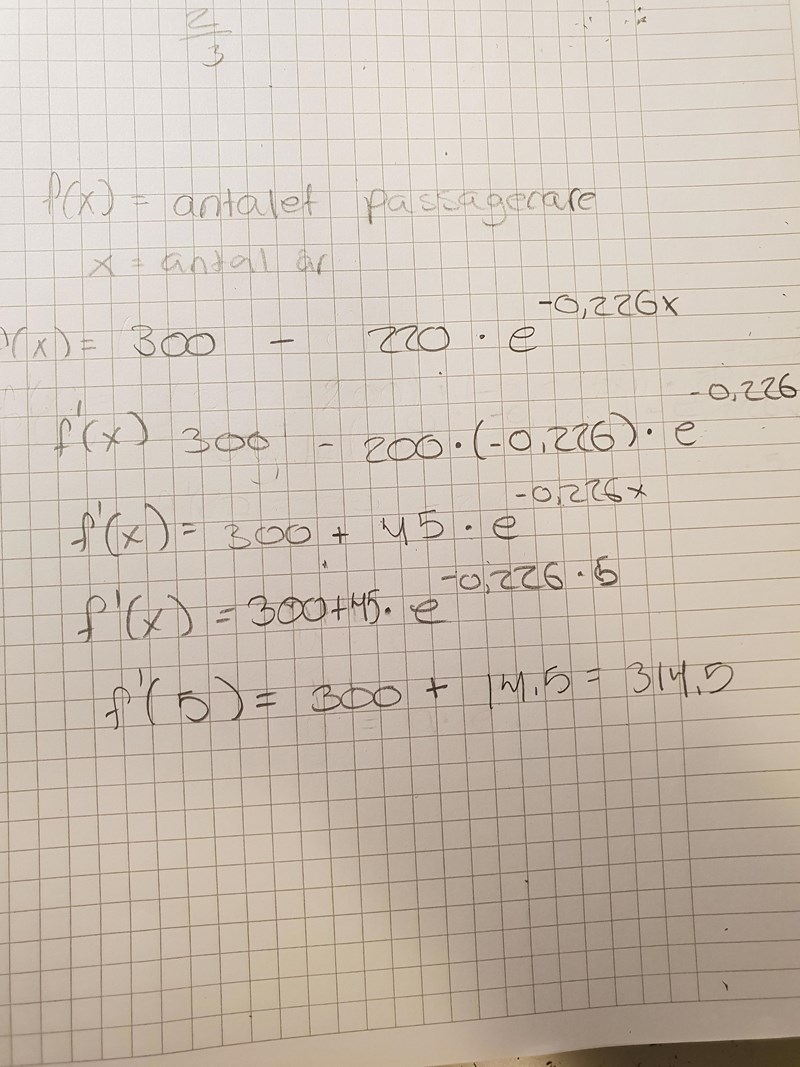 2/3
f(x) = antalet passagerare
x = antal år
f(x) = 300 - 220 · e^-0,226x
f'(x) 300 - 200 · (-0,226) · e^-0,226
f'(x) = 300 + 45 · e^-0,226x
f'(x) = 300+45 · e^-0,226 · 5
f'(5) = 300 + 14,5 = 314,5